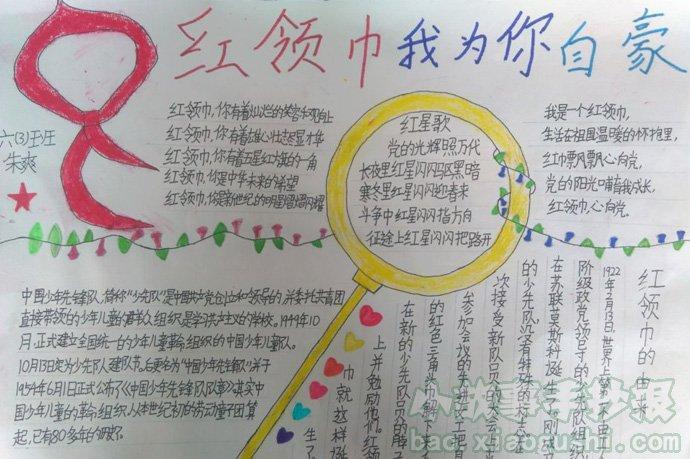 红领巾我为你自豪
六(3)班
朱爽
红领巾,你有着灿烂的笑容
红领巾,你有着雄心壮志显才华
红领巾,你有着五星红旗的一角
红领巾,你是中华未来的希望
红领巾,你是新世纪的明星
红星歌
党的光辉照万代
长夜里红星闪闪驱黑暗
寒冬里红星闪闪迎春来
斗争中红星闪闪指方向
征途上红星闪闪把路开
我是一个红领巾,
生活在祖国温暖的怀抱里,
红巾飘飘心向党,
党的阳光哺育我成长,
红领巾,心向党。
中国少年先锋队,简称"少先队"是中国共产党创立和领导的,并委托共青团
直接带领的少年儿童的群众组织是学习共产主义的学校。1949年10
月,正式建立全国统一的少年儿童革命组织的中国少年儿童队。
10月13日定为少先队建队节,后更名为"中国少年先锋队"并于
1954年6月1日正式公布了《中国少年先锋队队章》其实中
国少年儿童的革命组织从本世纪初的劳动童子团算
起,已有80多年的历史。
红领巾的由来
1922年2月13日,世界上第一个
阶级政党领导的
在苏联莫斯科诞生了,刚
的少先队没有特殊的标志
次接受新队员的大
参加会议的先进女工把自
的红色三角头巾解下
在新的少先队员的脖子
上并勉励他们。红领
巾就这样
生了
小故事手抄报
bao.xiaogushi.com